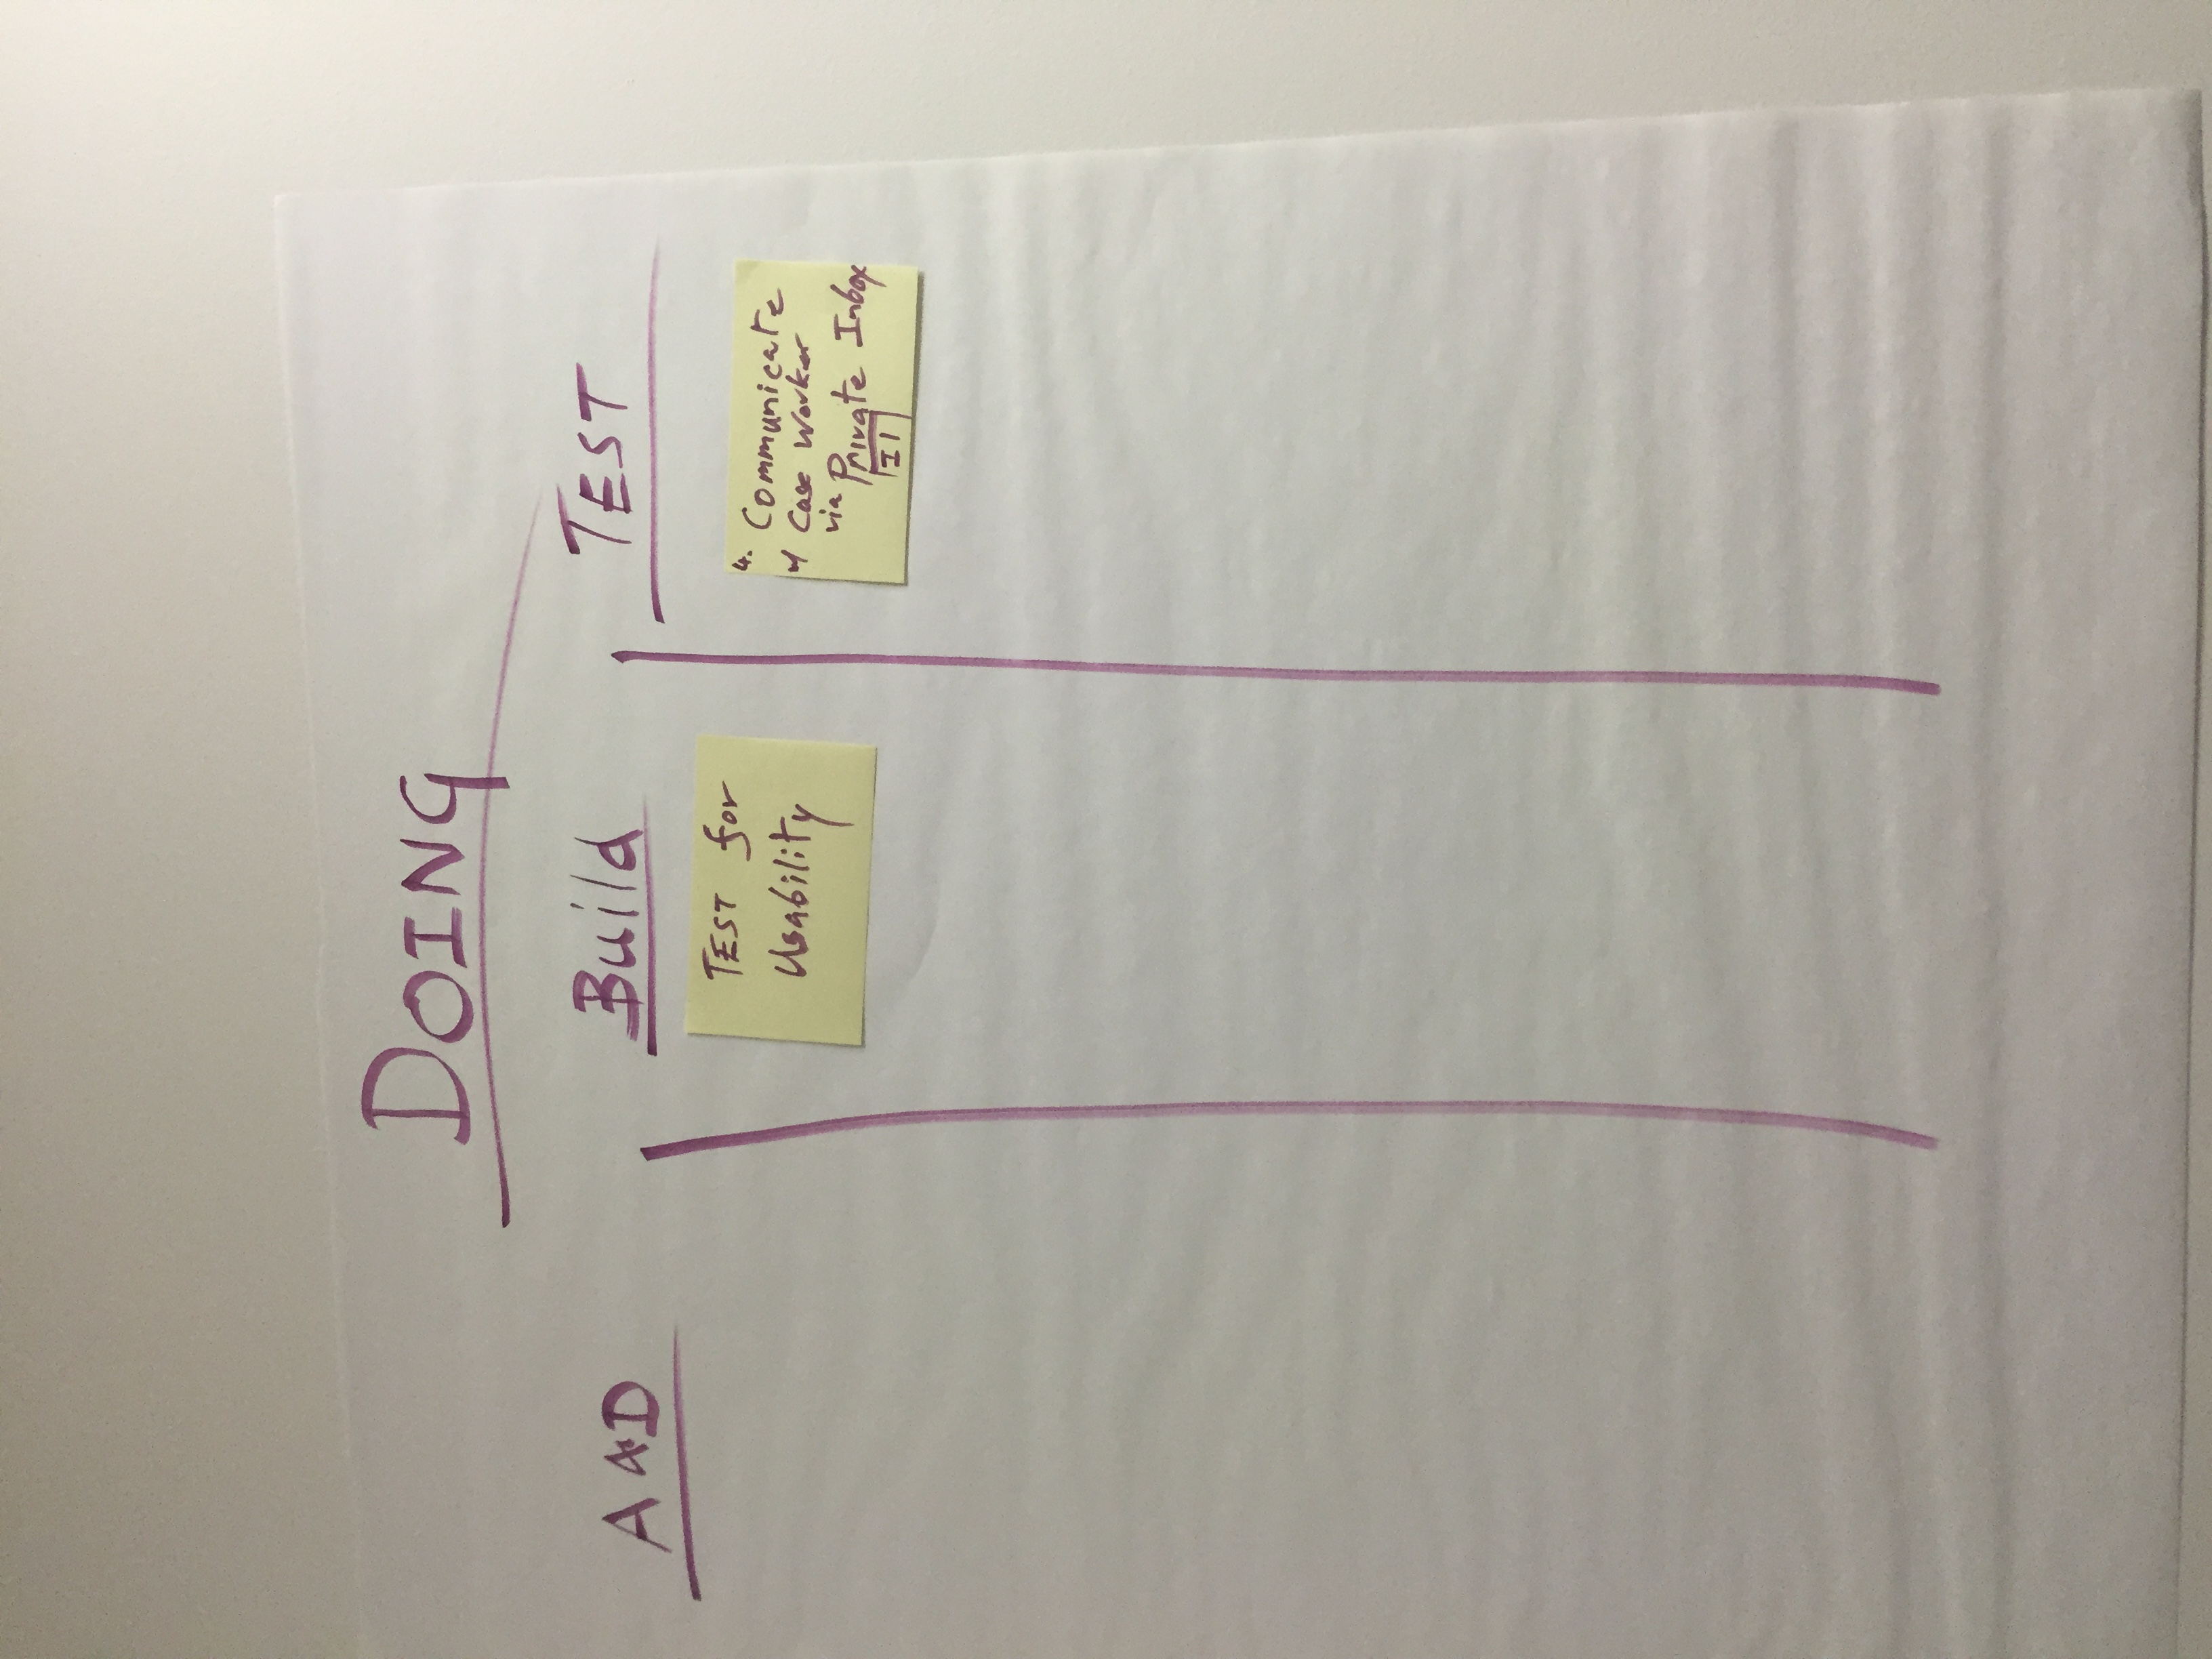 DOING
A & D
Build
TEST
TEST for
Usability
4. Communicate
w/ Case Worker
via Private Inbox
I1